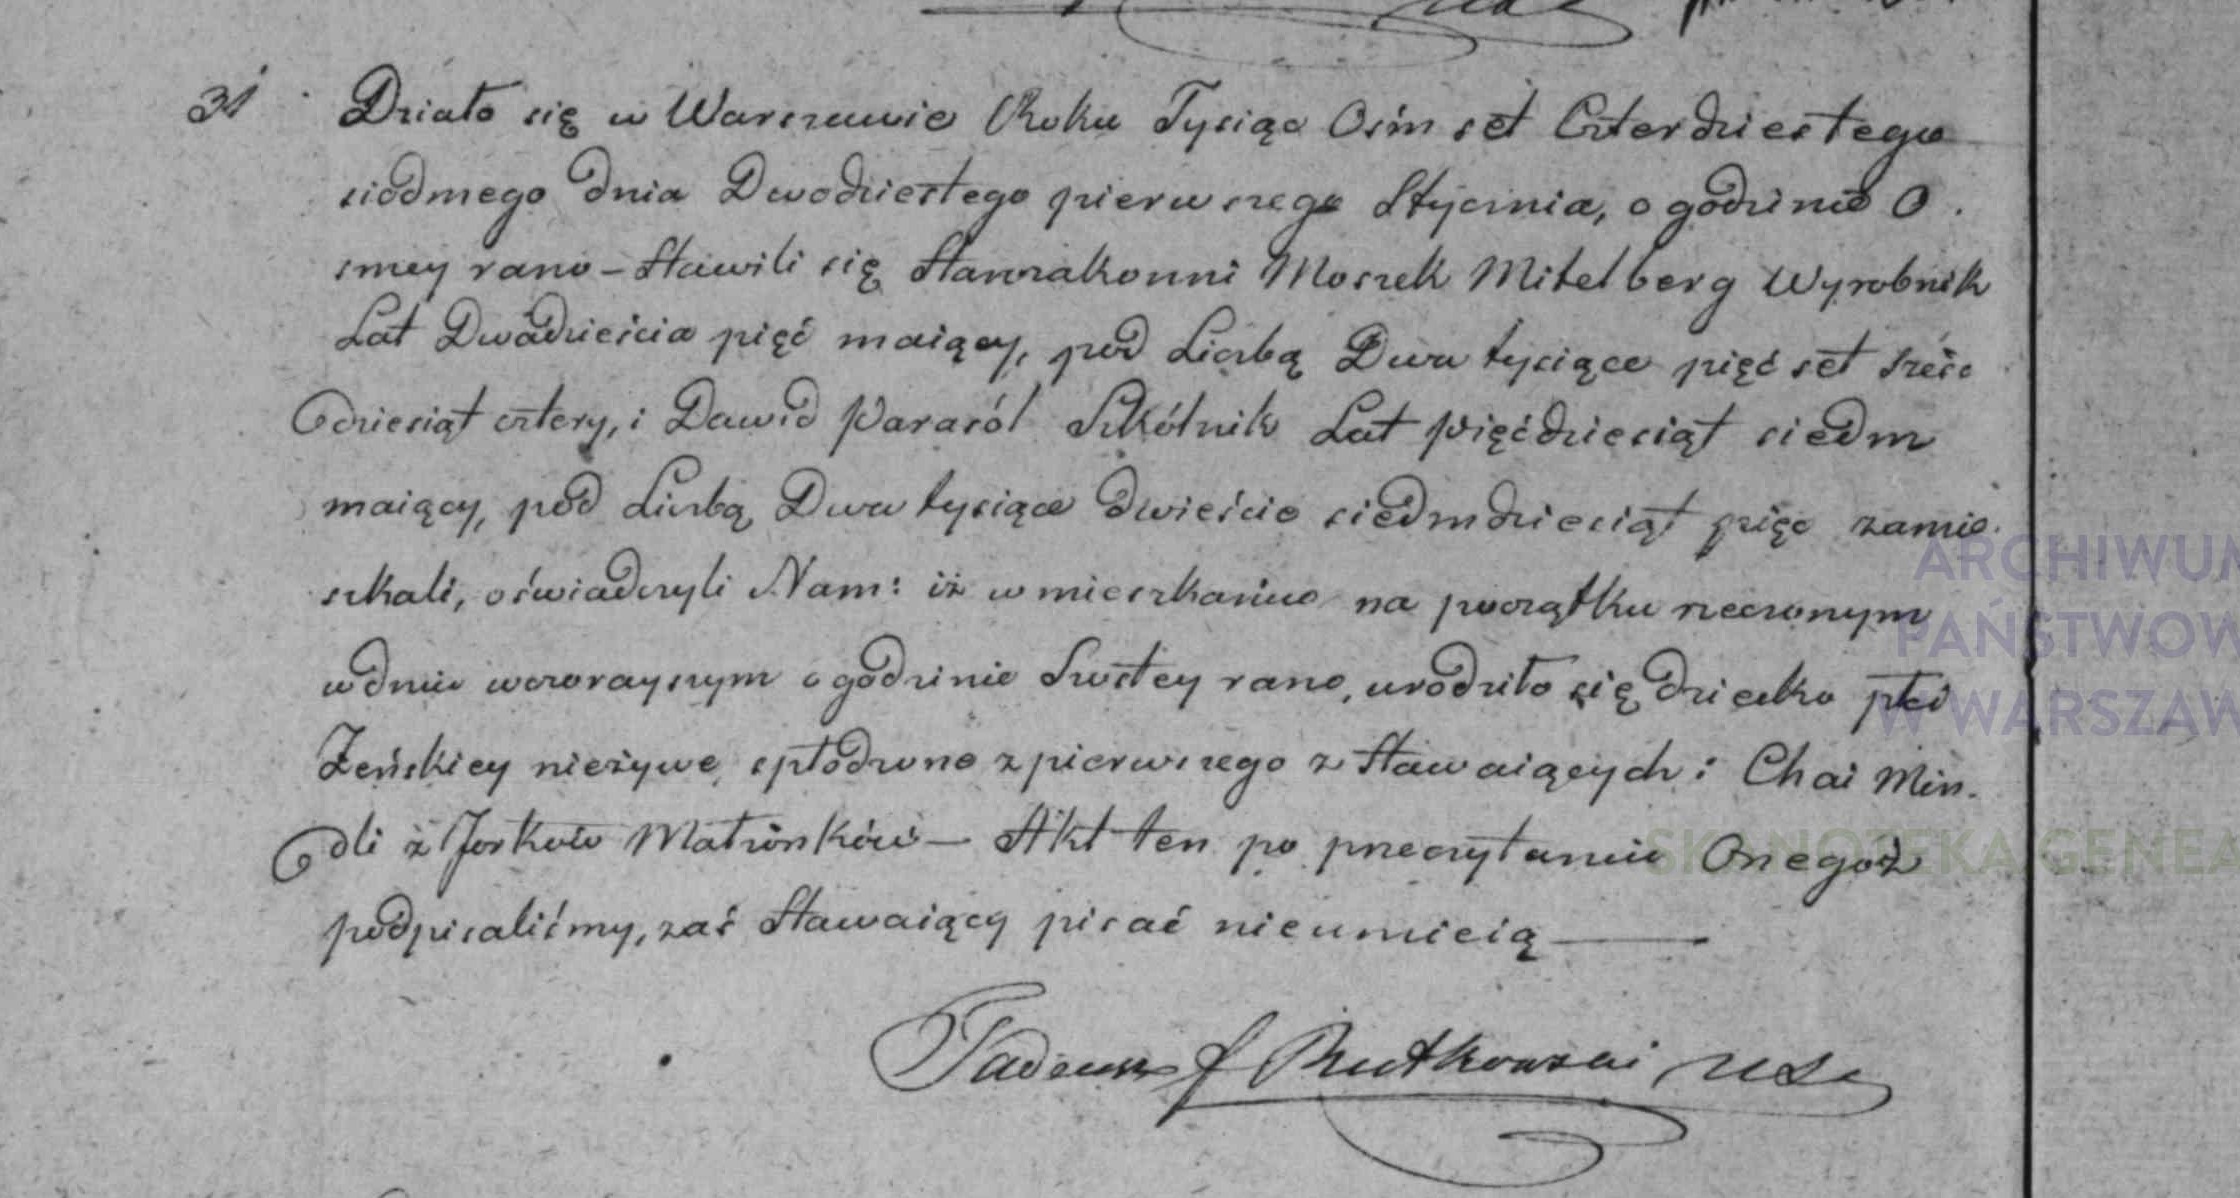 31
Działo się w Warszawie Roku Tysiąc Ośm set Czterdziestego
siódmego dnia Dwodziestego pierwszego Stycznia, o godzinie O.
smey rano – Stawili się Starozakonni Moszek Mitelberg Wyrobnik
Lat Dwadzieścia pięć maiący, pod Liczbą Dwa tysiące pięć set sześć
dziesiąt cztery, i Dawid Parasól Szkólnik Lat Pięćdziesiąt siedm
maiący, pod Liczbą Dwa tysiące dwieście siedmdziesiąt pięc zamie.
szkali, oświadczyli Nam: iż w mieszkaniu na początku rzeczonym
w dniu wczorayszym o godzinie Szóstey rano, urodziło się dziecko płci
Żeńskiey nieżywe, spłodzone z pierwszego z Stawaiących i Chai Min.
dli z Jorków Małżonków – Akt ten po przeczytaniu Onegoż
podpisaliśmy, zaś Stawaiący pisać nieumieią
Tadeusz Rutkowski
ARCHIWUM
PAŃSTWOW
W WARSZAW
SKANOTEKA GENEA